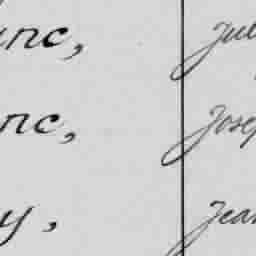 inc, Jul
nc, Josep
y, Jean